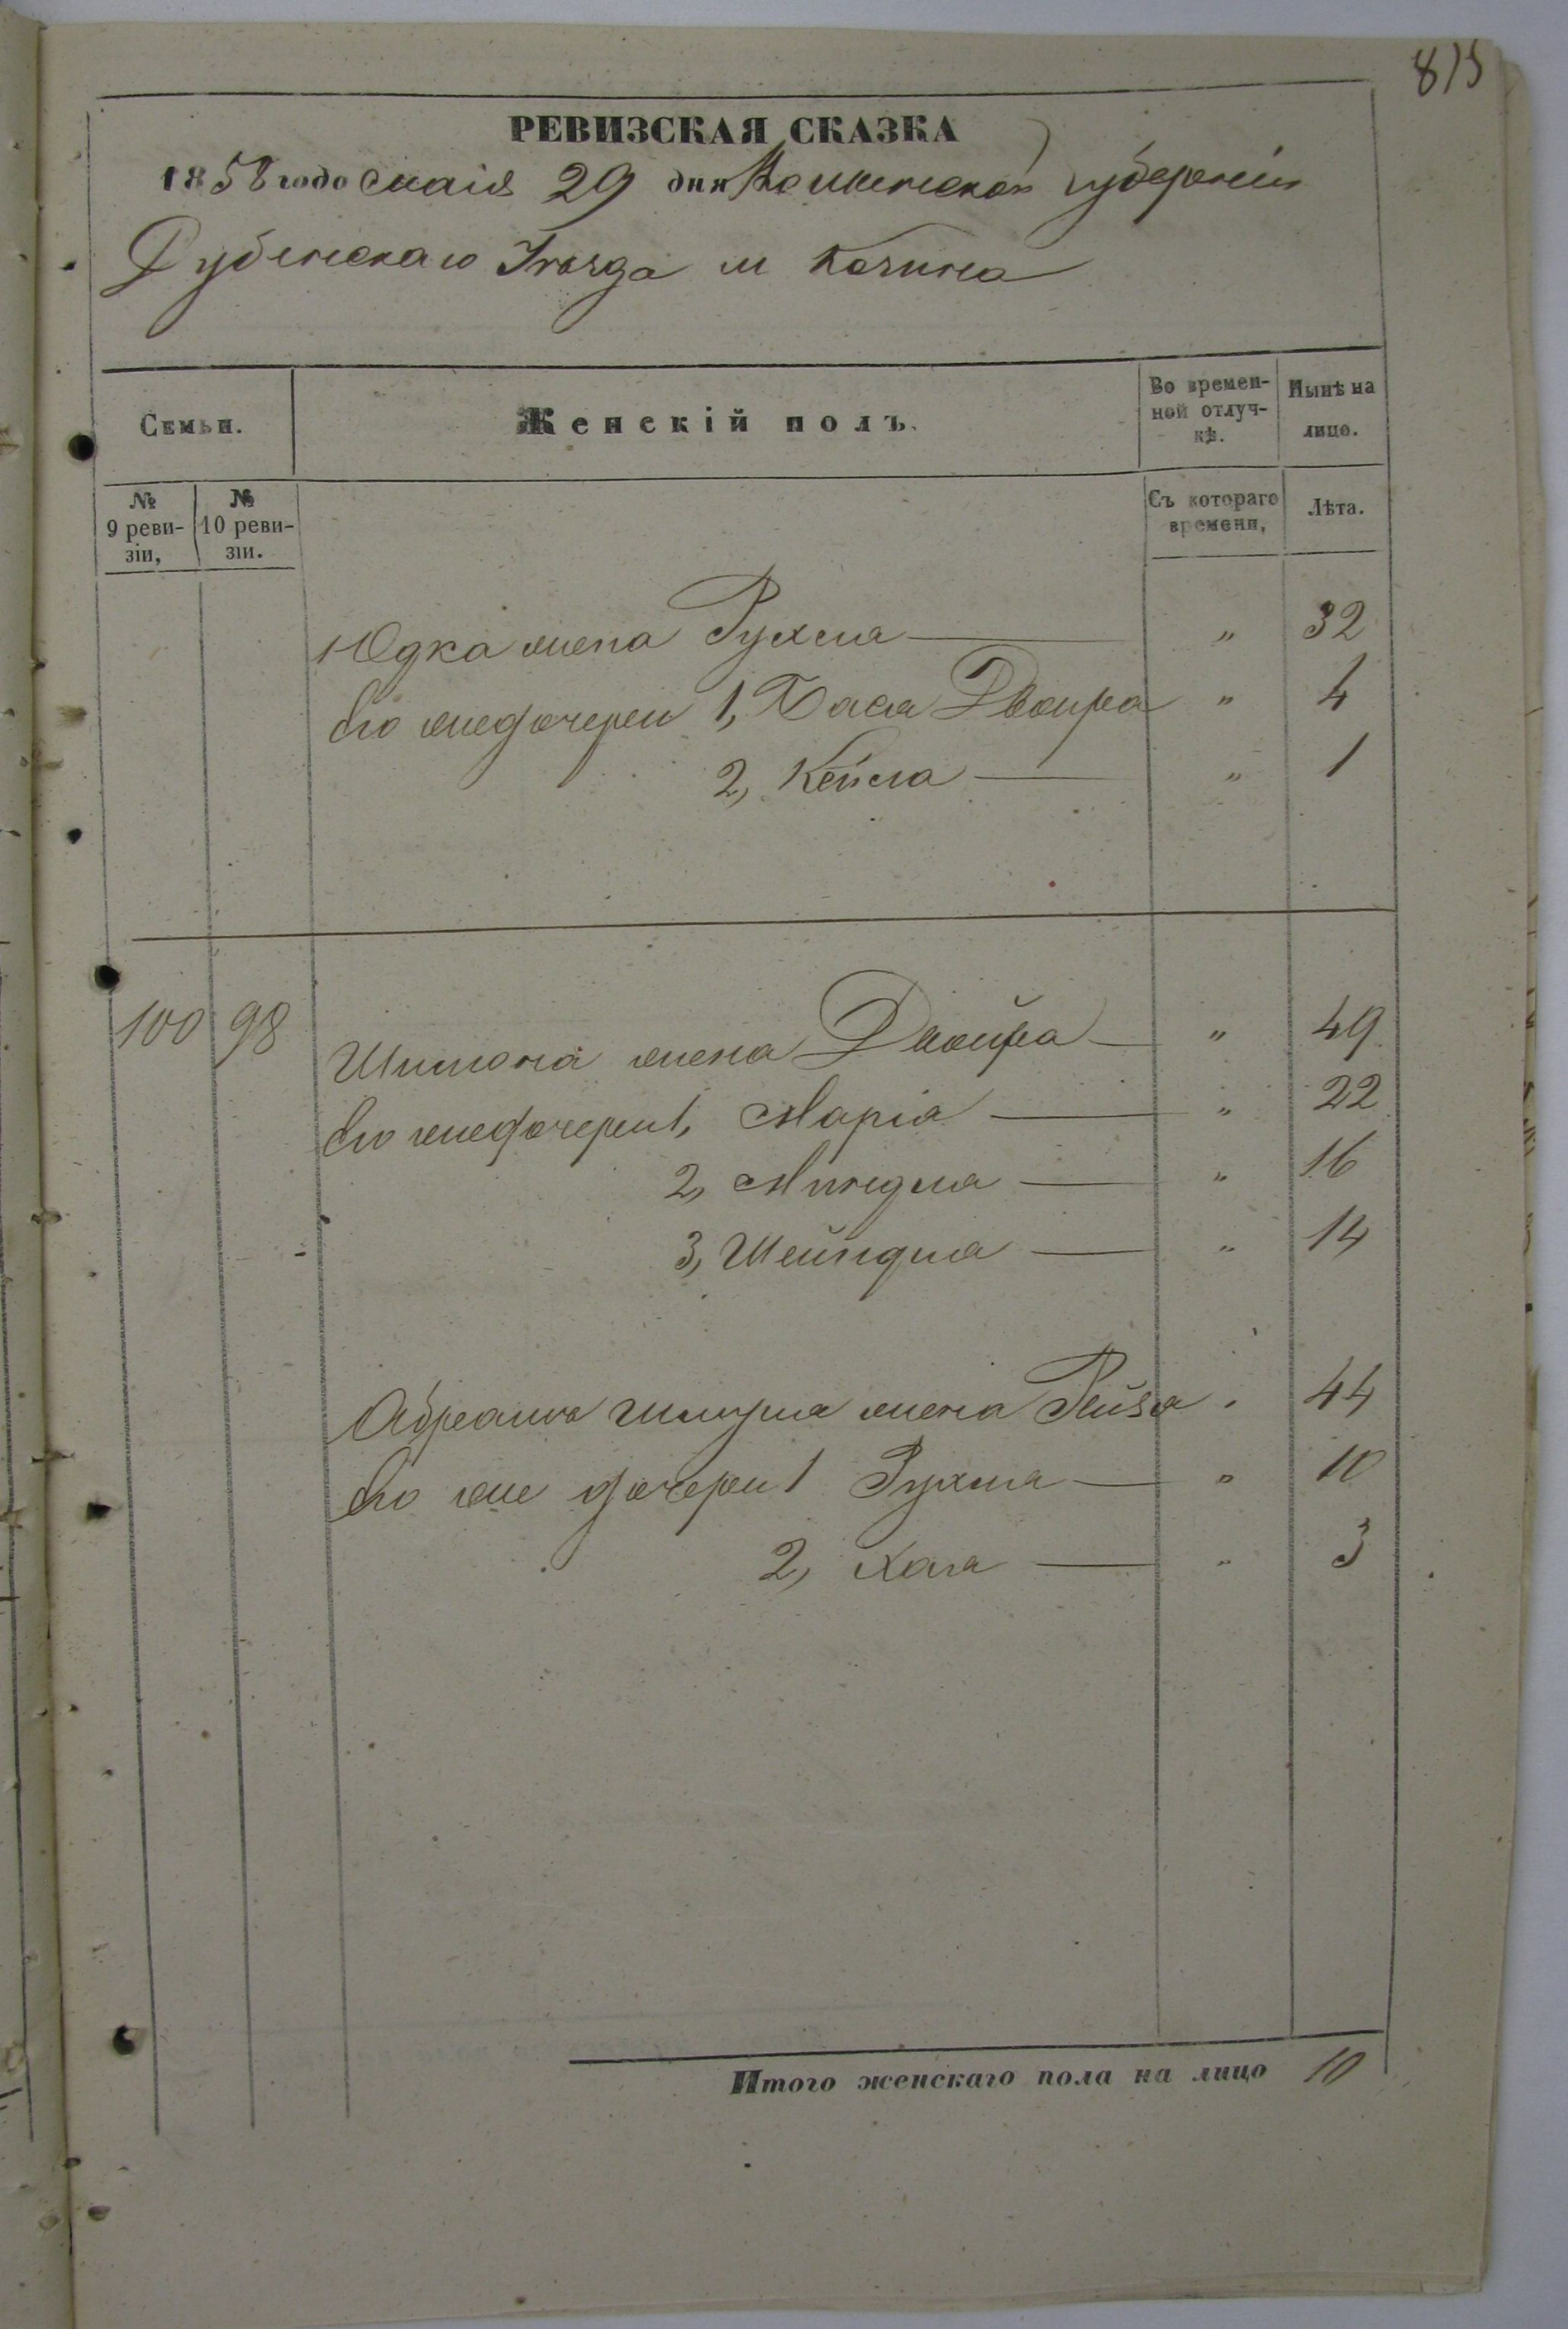 815
РЕВИЗСКАЯ СКАЗКА
1858 года Маія 29 дня Волынской Губерніи
Дубенскаго Уѣзда м Козина
Семьи.
Женскій полъ.
Во времен-
ной отлуч-
кѣ.
Нынѣ на
лицо.
№
9 реви-
зіи,
№
10 реви-
зіи.
Съ котораго
времени,
Лѣта.
Юдка жена Рухля " 32
Его же дочери 1, Бася Двойра " 4
2, Кейла " 1
100 98 Шимона жена Двойра " 49
Его же дочери 1, Марія " 22
2, Миндля " 16
3, Шейндля " 14
Абрама Шмуля жена Рейзя " 44
Его же дочери 1 Рухля " 10
2, Хая " 3
Итого женскаго пола на лицо 10